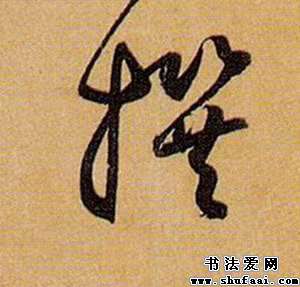 撰
书法爱网
www.shufaai.com